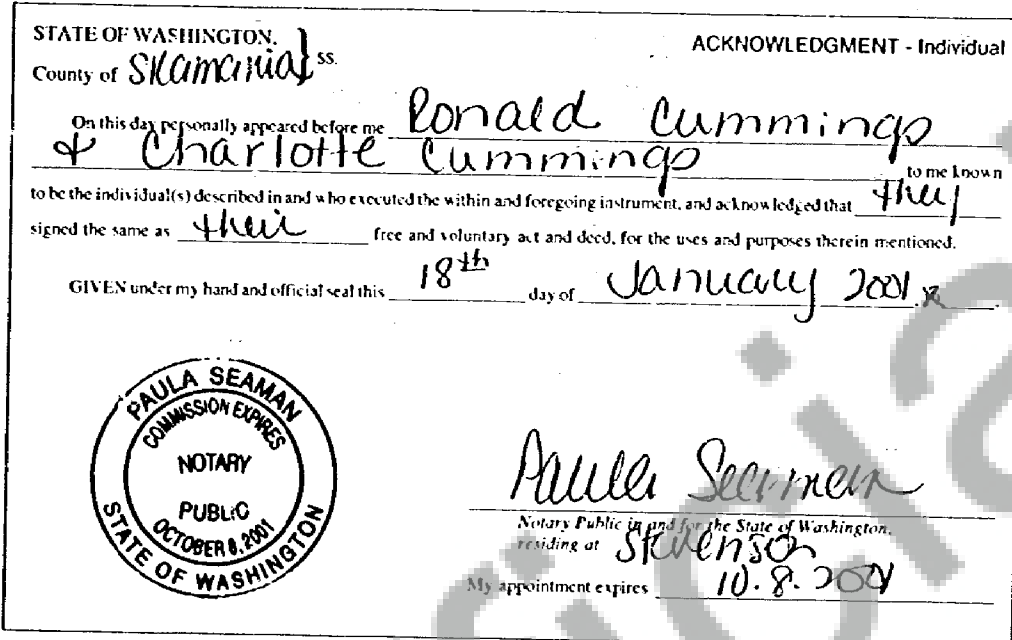 STATE OF WASHINGTON, } ss.
ACKNOWLEDGMENT - Individual
County of Skamania
On this day personally appeared before me Ronald Cummings
& Charlotte Cummings to me known
to be the individual(s) described in and who executed the within and foregoing instrument, and acknowledged that they
signed the same as their free and voluntary act and deed, for the uses and purposes therein mentioned.
GIVEN under my hand and official seal this 18th day of January 2001.
PAULA SEAMAN
COMMISSION EXPIRES
NOTARY
PUBLIC
OCTOBER 8, 2001
STATE OF WASHINGTON
Paula Seaman
Notary Public in and for the State of Washington,
residing at Stevenson
My appointment expires 10.8.2001